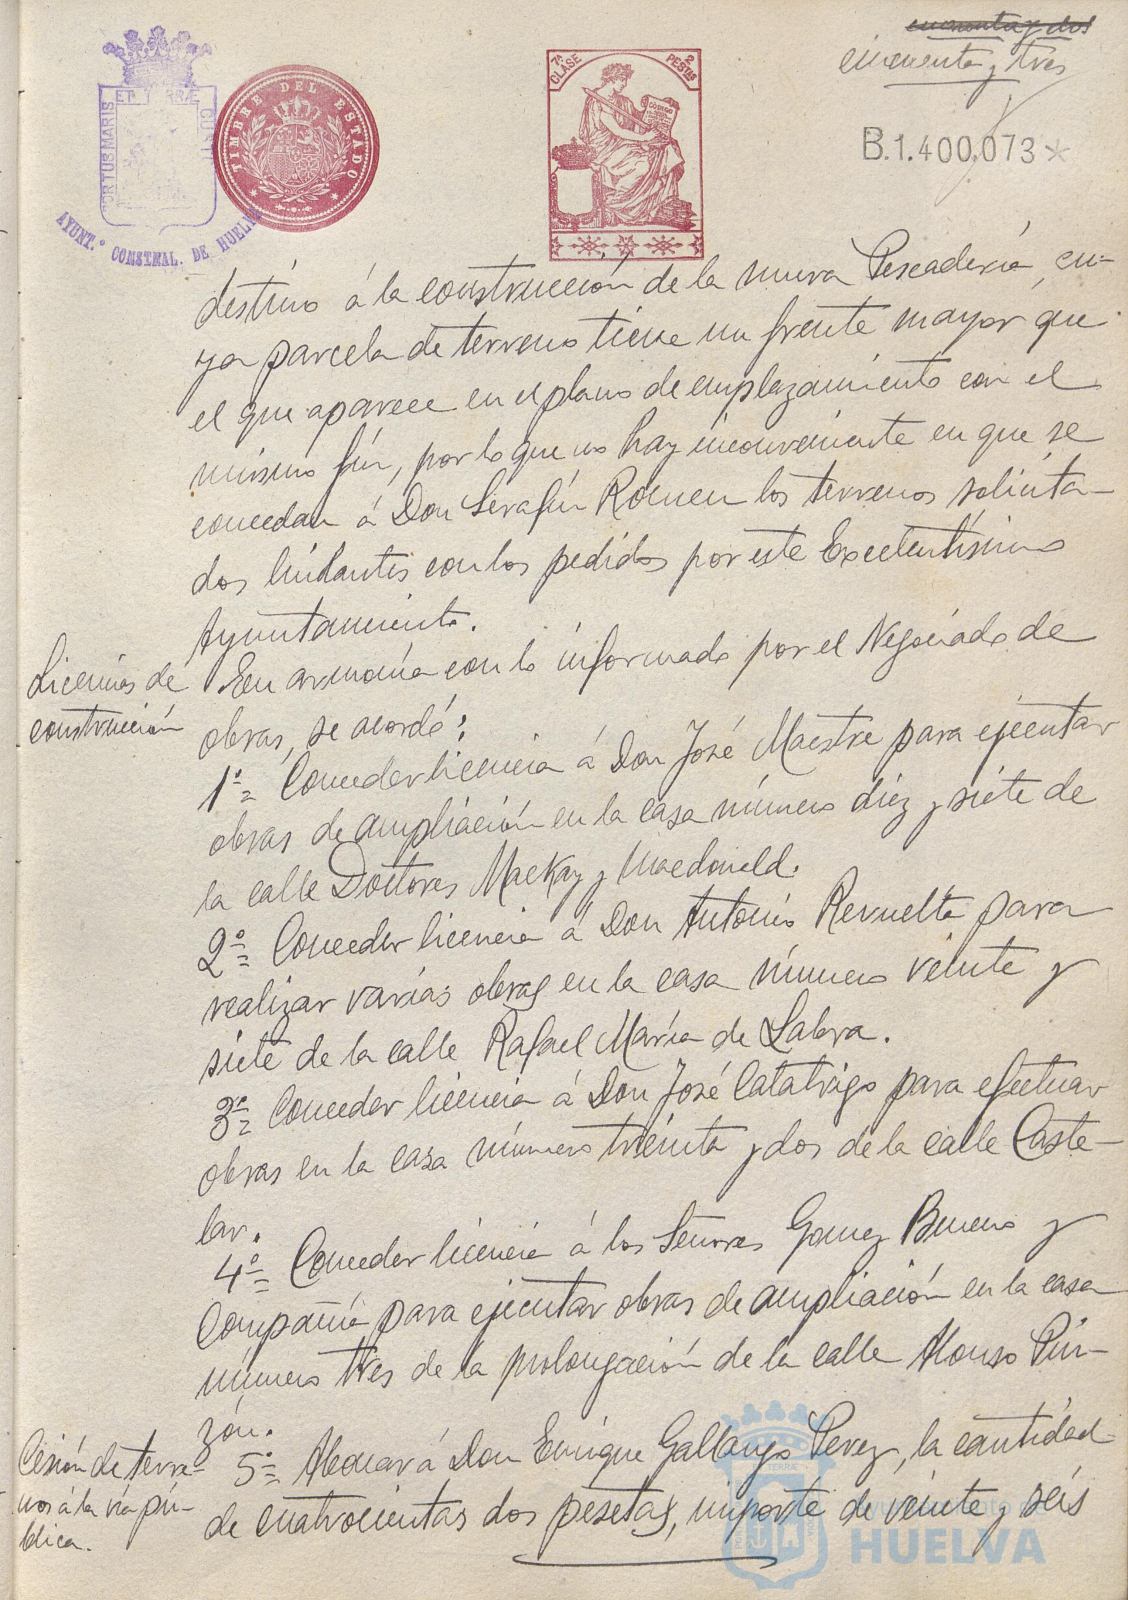 cincuenta y dos
cincuenta y tres
ET TERRÆ
PORTUS MARIS
CUSTO
AYUNT.º CONSTNAL. DE HUELVA
TIMBRE DEL ESTADO
7ª CLASE
2 PESTAS
CODIGO
B.1.400,073*
destino á la construcción de la nueva Pescadería, cu-
ya parcela de terreno tiene un frente mayor que
el que aparece en el plano de emplazamiento con el
mismo fín, por lo que no hay inconveniente en que se
concedan á Don Serafín Romeu los terrenos solicita-
dos lindantes con los pedidos por este Excelentísimo
Ayuntamiento.
Licencias de
construcción
En armonía con lo informado por el Negociado de
obras, se acordó:
1º= Conceder licencia á Don José Maestre para ejecutar
obras de ampliación en la casa número diez y siete de
la calle Doctores Mackay y Macdonald.
2º= Conceder licencia á Don Antonio Revuelta para
realizar varias obras en la casa número veinte y
siete de la calle Rafael María de Labra.
3º= Conceder licencia á Don José Catatrigo para efectuar
obras en la casa número treinta y dos de la calle Caste-
lar.
4º= Conceder licencia á los Señores Gomez Bueno y
Compañía para ejecutar obras de ampliación en la casa
número tres de la prolongación de la calle Alonso Pin-
zón.
Cesión de terre-
nos á la vía pú-
blica.
5º= Abonar á Don Enrique Gallango Perez, la cantidad
de cuatrocientas dos pesetas, importe de veinte y seis
Ayuntamiento de
HUELVA